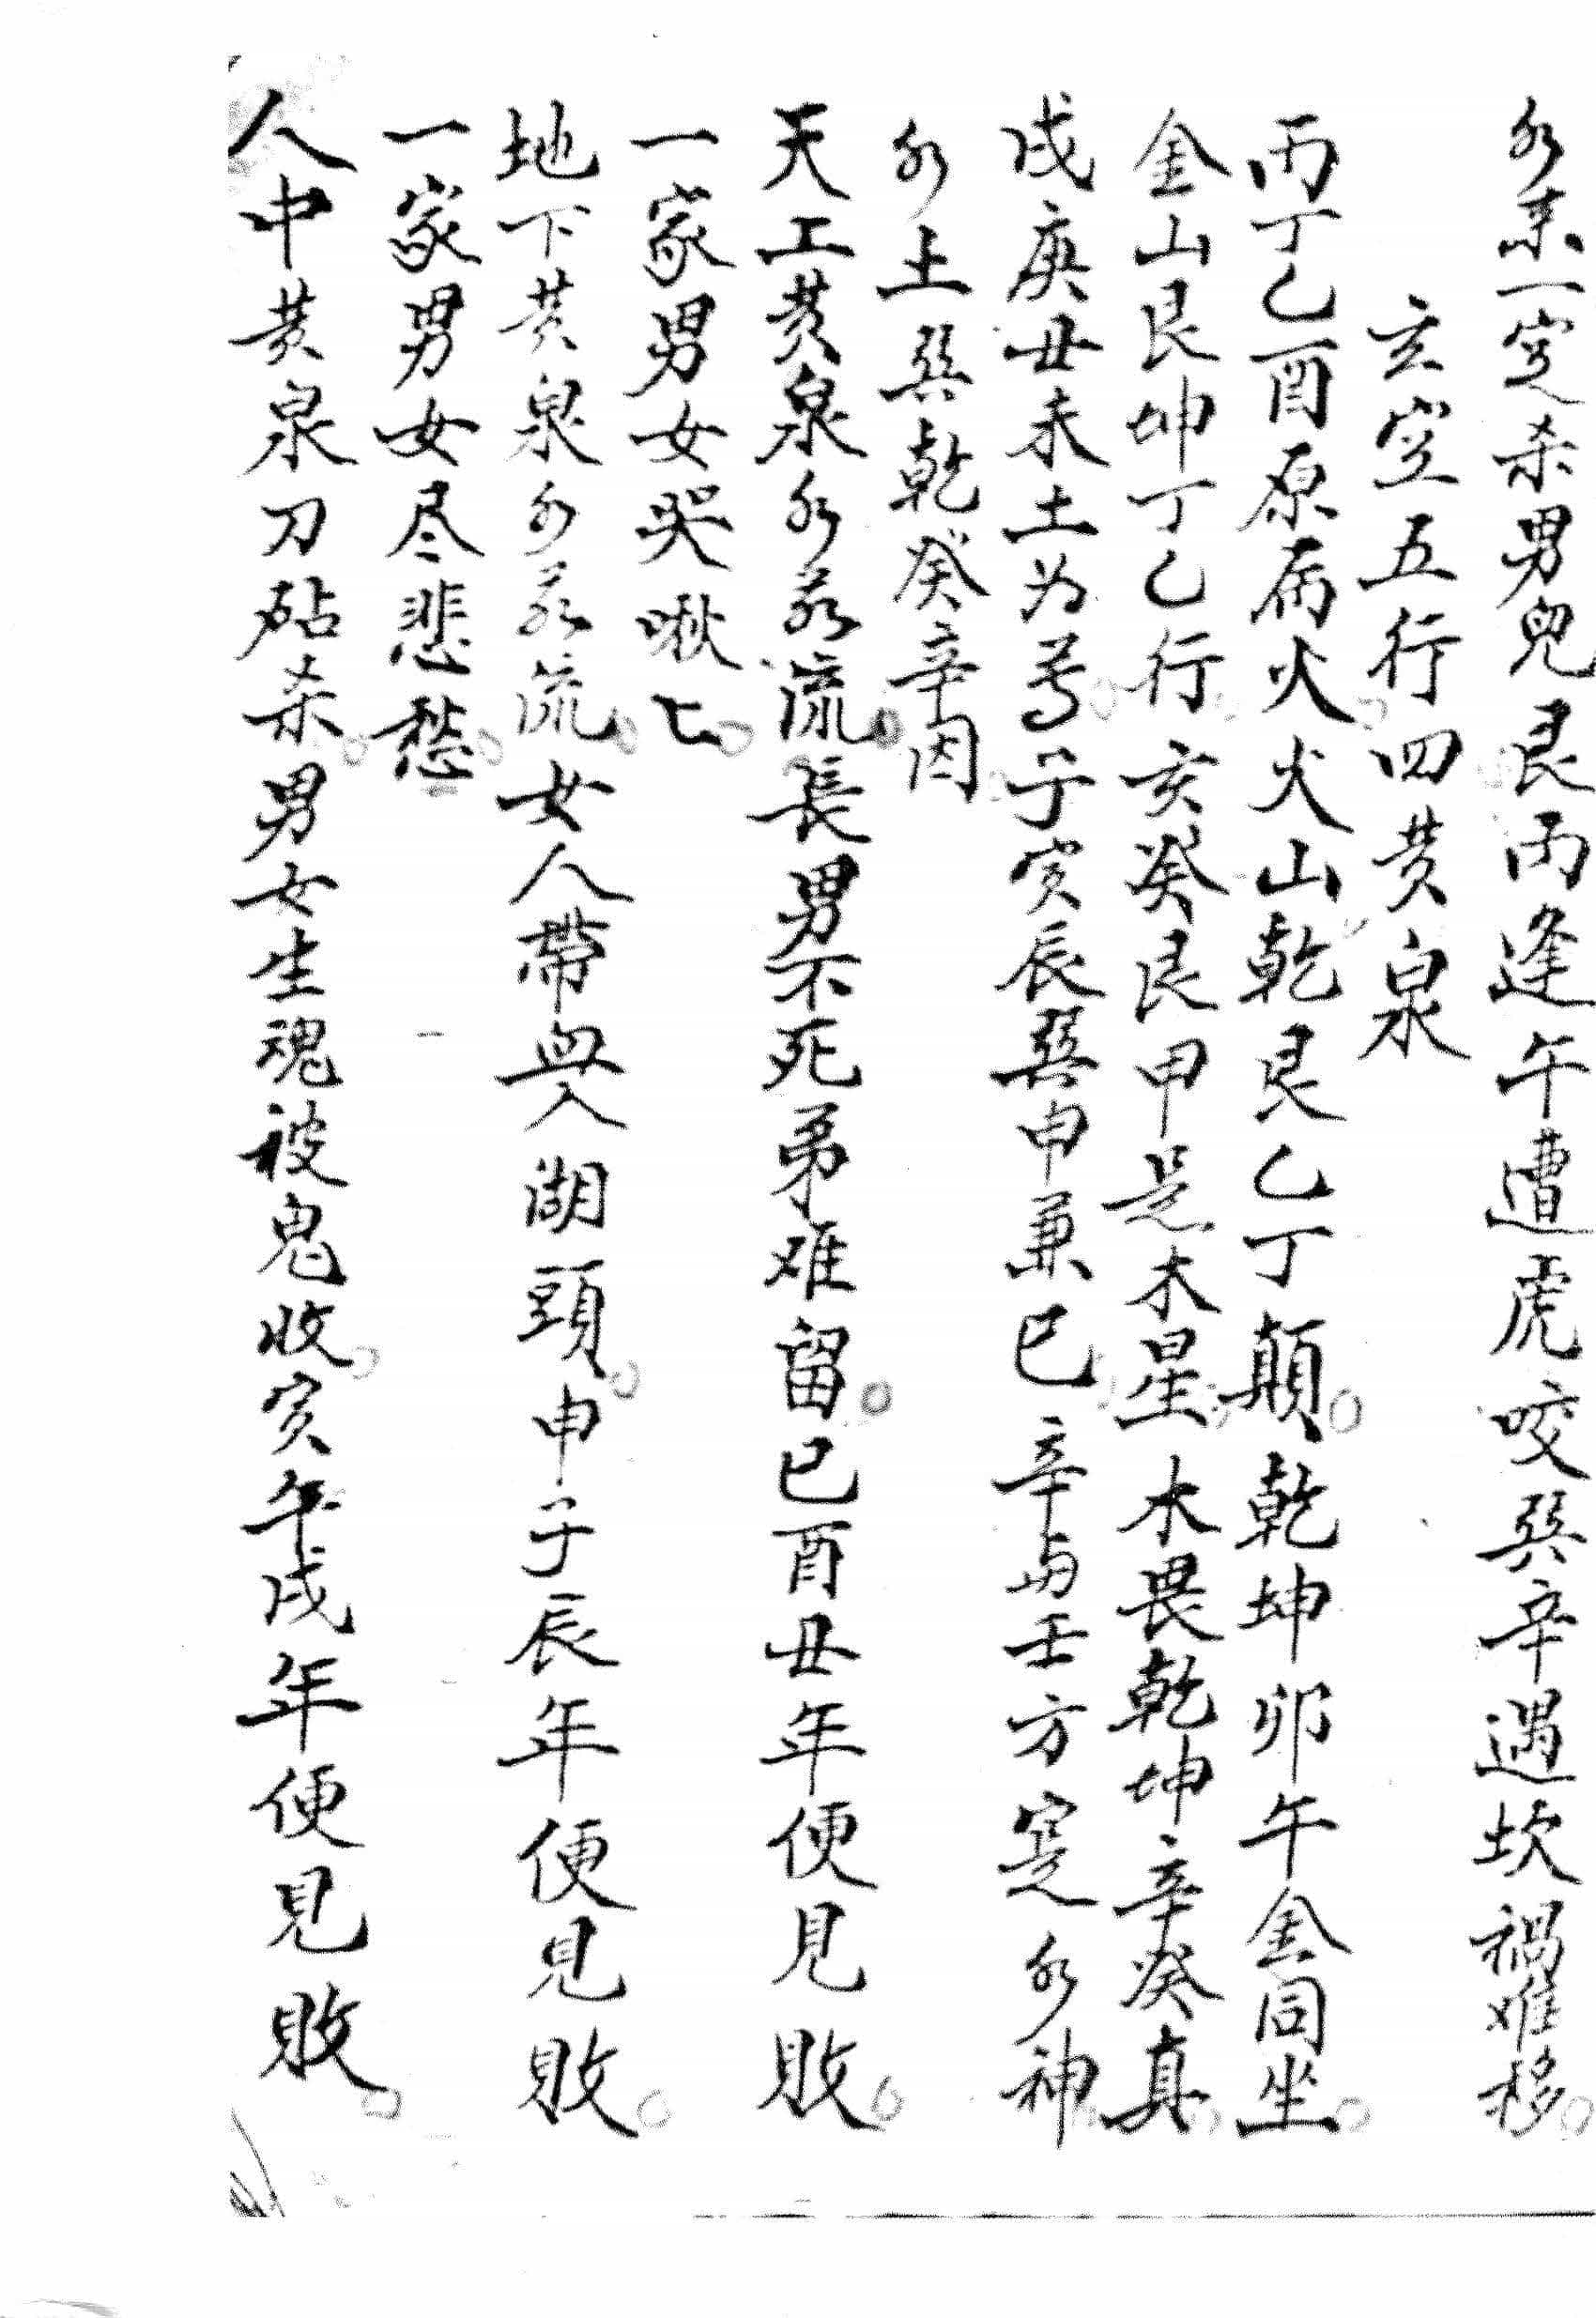 水来一定杀男兒艮丙逢午遭虎咬巽辛遇坎禍难移
玄空五行四黄泉
丙丁乙酉原属火火山乾艮乙丁顛乾坤卯午金同坐
金山艮坤丁乙行亥癸艮甲是木星木畏乾坤辛癸真
戌庚丑未土为子寅辰巽申兼巳辛与壬方寔水神
水土巽乾癸辛因
天工黄泉水若流長男不死弟难留巳酉丑年便見敗
一家男女哭啾七
地下黄泉水若流女人帶血入湖頭申子辰年便見敗
一家男女尽悲愁
人中黄泉刀砧杀男女生魂被鬼收寅午戌年便見敗